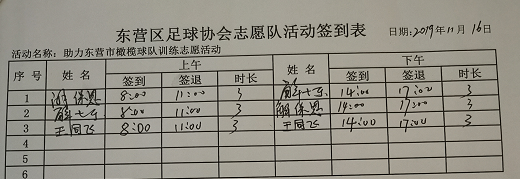 东营区足球协会志愿队活动签到表 日期:2019年11月16日
活动名称:助力东营市橄榄球队训练志愿活动
序号 姓名 上午 姓名 下午
签到 签退 时长 签到 签退 时长
1 8:00 11:00 3 14:00 17:00 3
2 8:00 11:00 3 14:00 17:00 3
3 王同飞 8:00 11:00 3 王同飞 14:00 17:00 3
4
5
6